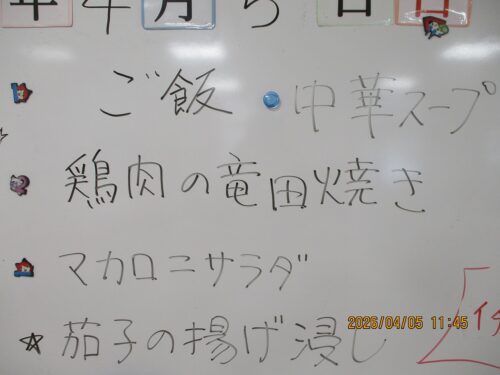 年4月5日日
ご飯 中華スープ
鶏肉の竜田焼き
マカロニサラダ
茄子の揚げ浸し
2026/04/05 11:45
イチ